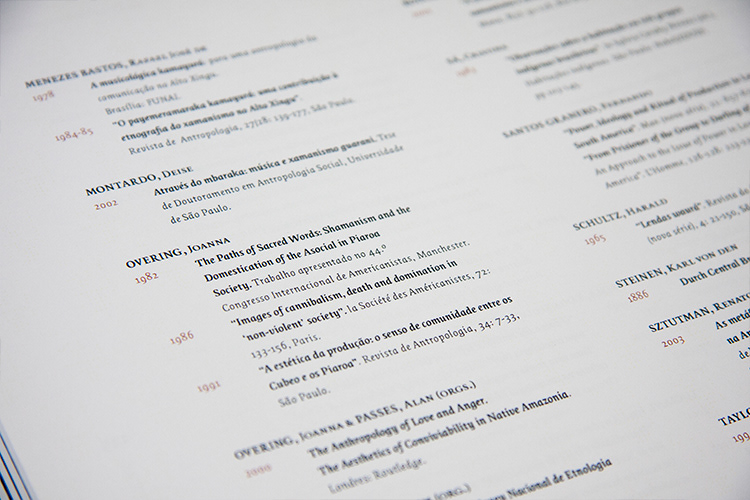 MENEZES BASTOS, RAFAEL JOSÉ DE
1978
A musicológica kamayurá: para uma antropologia da
comunicação no Alto Xingu.
Brasília: FUNAI.
1984-85
"O payemeramaraka kamayurá: uma contribuição à
etnografia do xamanismo no Alto Xingu".
Revista de Antropologia, 27/28: 139-177, São Paulo.
MONTARDO, DEISE
2002
Através do mbaraka: música e xamanismo guarani. Tese
de Doutoramento em Antropologia Social, Universidade
de São Paulo.
OVERING, JOANNA
1982
The Paths of Sacred Words: Shamanism and the
Domestication of the Asocial in Piaroa
Society. Trabalho apresentado no 44.º
Congresso Internacional de Americanistas, Manchester.
1986
"Images of cannibalism, death and domination in
'non-violent' society". la Société des Américanistes, 72:
133-156, Paris.
1991
"A estética da produção: o senso de comunidade entre os
Cubeo e os Piaroa". Revista de Antropologia, 34: 7-33,
São Paulo.
OVERING, JOANNA & PASSES, ALAN (ORGS.)
2000
The Anthropology of Love and Anger.
The Aesthetics of Conviviability in Native Amazonia.
Londres: Routledge.
(ORG.)
Nacional de Etnologia
2002
SÁ, CRISTINA
indígenas brasileiras".
SANTOS-GRANERO, FERNANDO
"Power, Ideology and Ritual of Production in
South America".
"From Prisoner of the Group to Darling of
An Approach to the Issue of Power in
America". L'Homme,
SCHULTZ, HARALD
1965
"Lendas waurá". Revista do
(nova série), 4: 21-150, São
STEINEN, KARL VON DEN
1886
Durch Central
SZTUTMAN, RENATO
2003
As metá
na
de
TAYLO
199